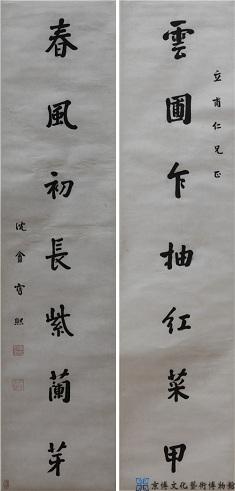 立甫仁兄正
雲圃乍抽红菜甲
春風初長紫蘭芽
沈
京博文化藝術博物館